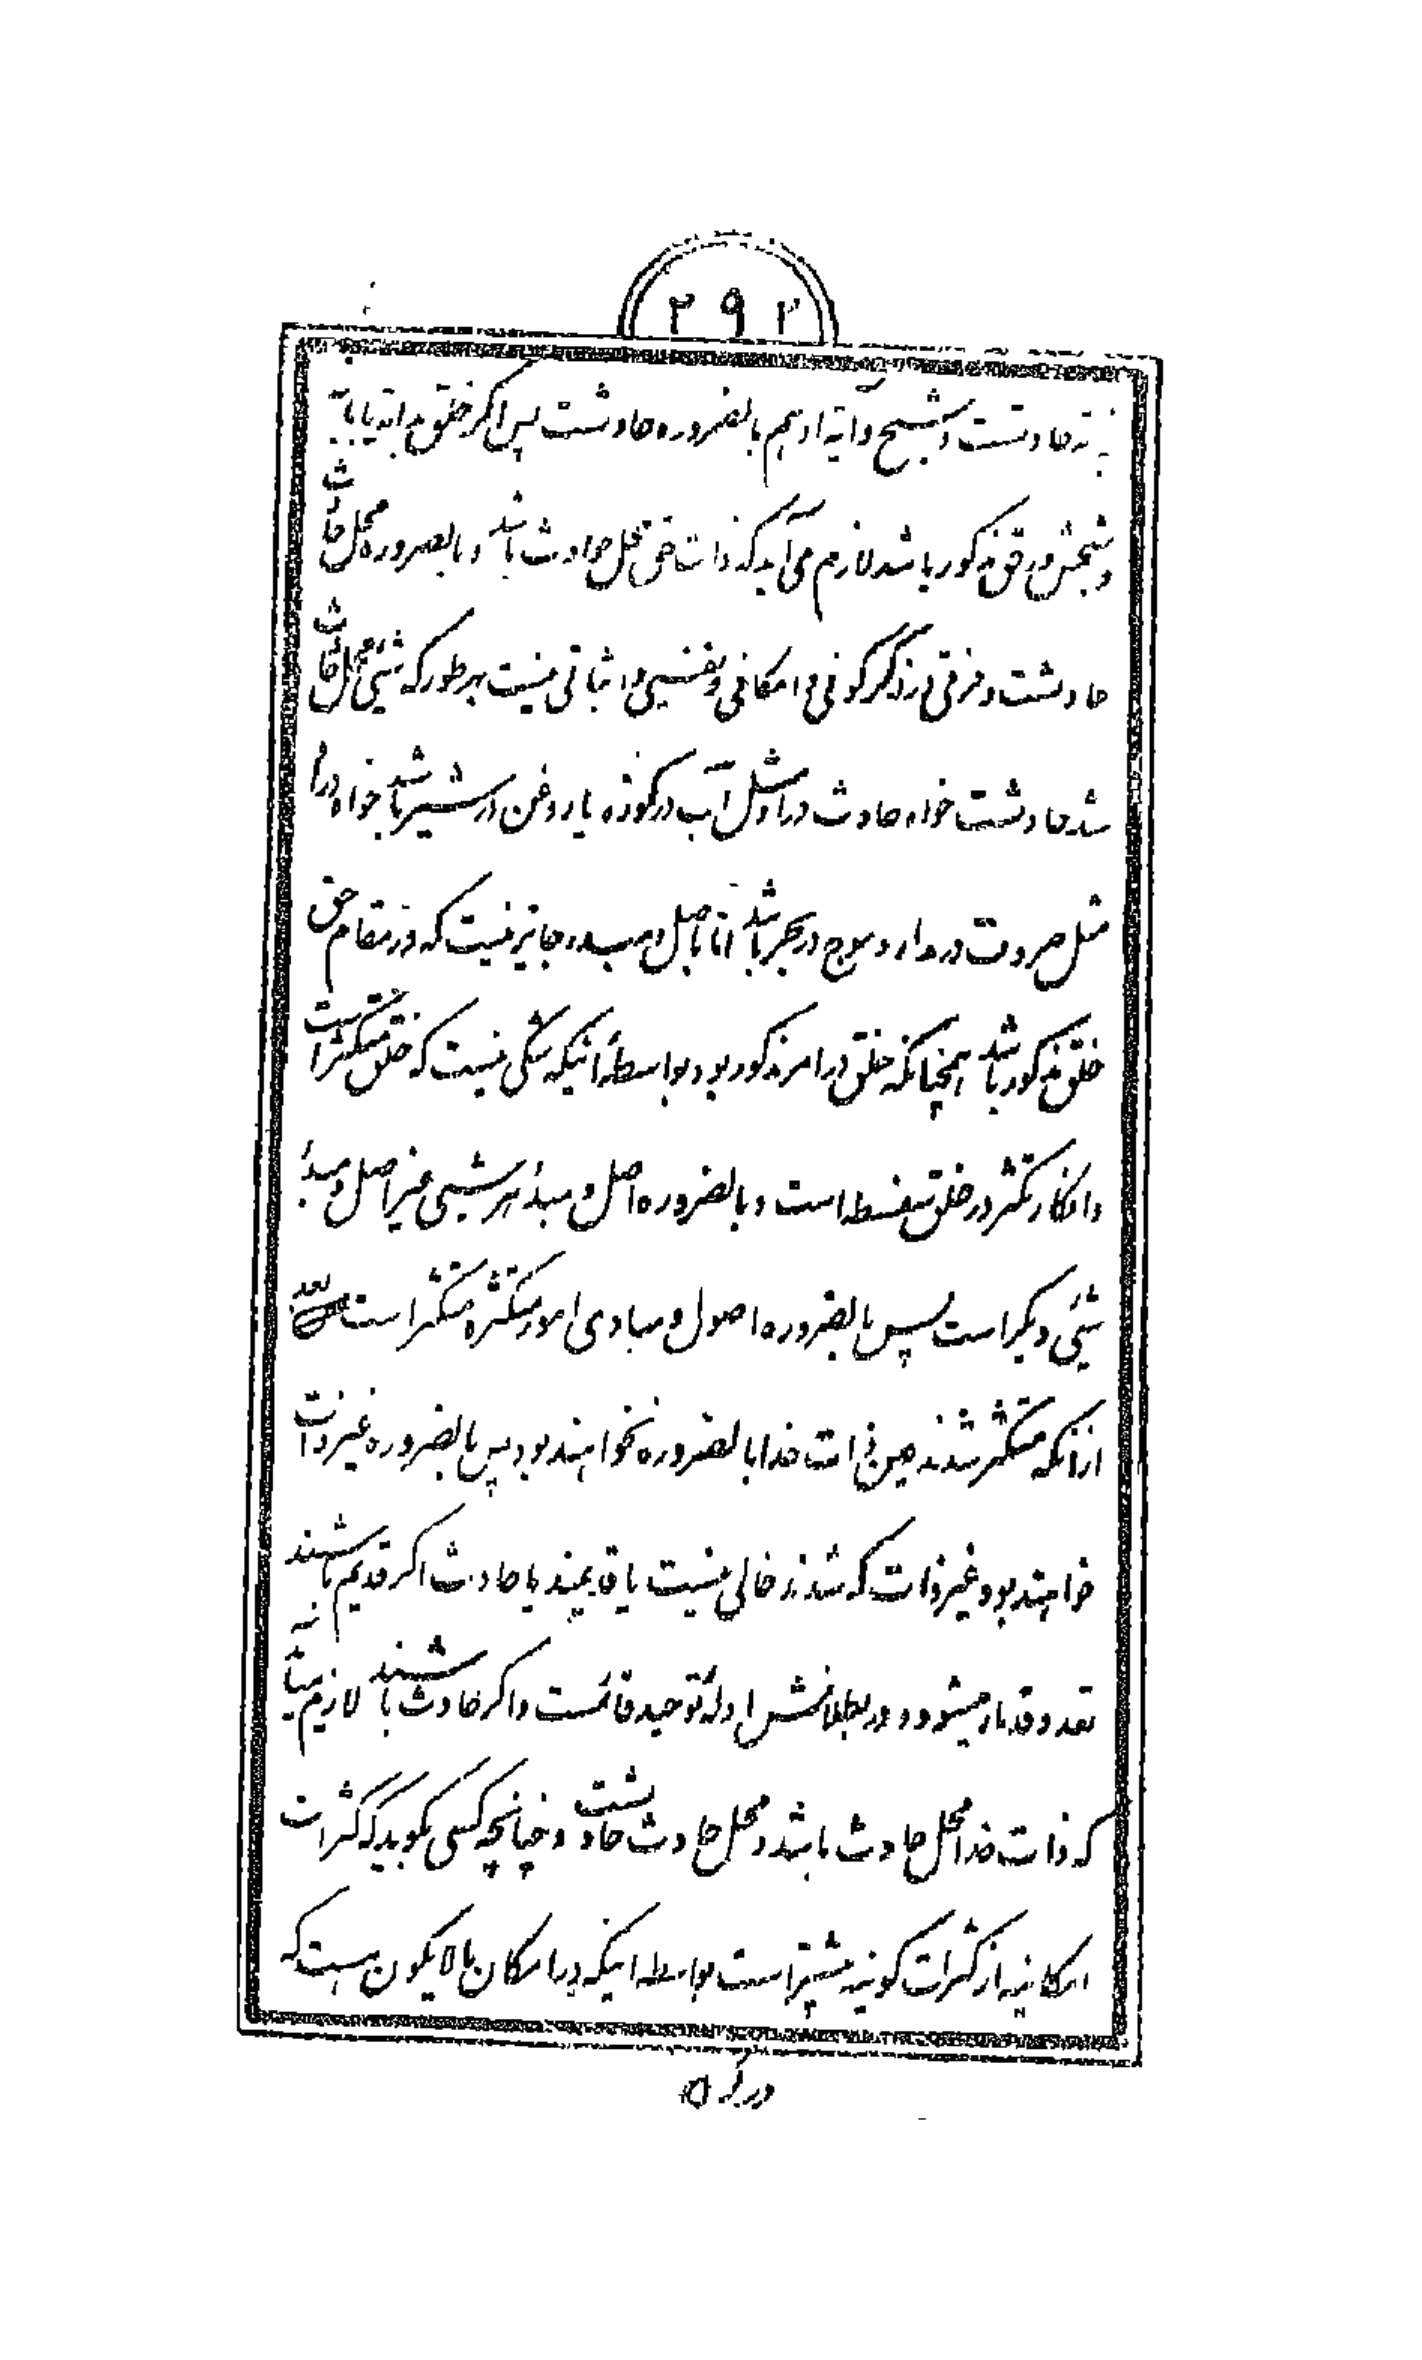 ۲۹۲
حادثست و شبح و آیة او هم بالضروره حادثست پس اگر خلق بذاته یا بآیة
و شبحش در حق مذکور باشد لازم می‌آید که ذات حق محل حوادث باشد و بالضروره محل حادث
حادثست و فرقی در ذکر کونی و امکانی و نفیی و اثباتی نیست بهر طور که شیئی محل حادث
شد حادثست خواه حادث در او مثل آب در کوزه یا روغن در شیر باشد خواه در او
مثل حروف در مداد و موج در بحر باشد اما باصل و مبدء جایز نیست که در مقام حق
خلق مذکور باشد همچنانکه خلق در امر مذکور بود بواسطهٔ اینکه شکی نیست که خلق متکثر است
و انکار تکثر در خلق سفسطه است و بالضروره اصل و مبدء هر شیئی غیر اصل و مبدء
شیئی دیگر است پس بالضروره اصول و مبادی امور متکثره متکثر است بعد
از آنکه متکثر شدند عین ذات خدا بالضروره نخواهند بود پس بالضروره غیر ذات
خواهند بود و غیر ذات که شدند خالی نیست یا قدیمند یا حادث اگر قدیم باشند
تعدد قدما میشود و در بطلانش ادلهٔ توحید قائمست و اگر حادث باشند لازم میآید
که ذات خدا محل حادث باشد و محل حادث حادثست و چنانچه کسی بگوید که کثرات
امکانیه از کثرات کونیه بیشتر است بواسطه اینکه در امکان ما لا یکون هست که